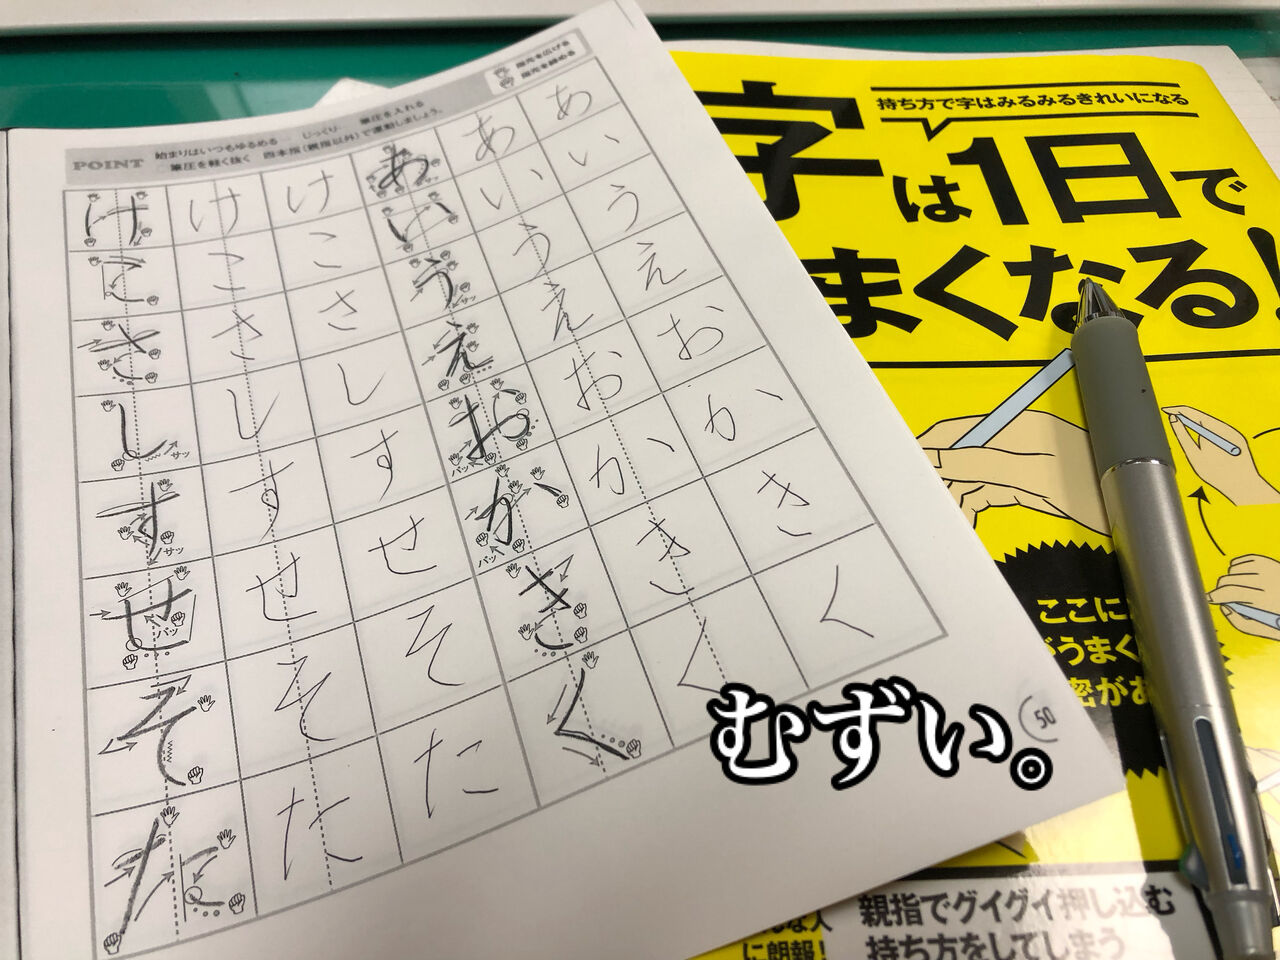 指先を広げる
POINT 始まりはいつもゆるめる… じっくり… 筆圧を入れる
筆圧を軽く抜く 四本指(親指以外)で運動しましょう。
け け け あ サッ あ あ
こ こ こ い い い
さ さ さ う サッ う う
し サッ し し え え え
す サッ す す お パッ お お
せ パッ せ せ か パッ か か
そ そ そ き き き
た た た く く く
50
むずい。
持ち方で字はみるみるきれいになる
字は1日で
まくなる!
ここに
がうまく
密があ
な人
に朗報!
親指でグイグイ押し込む
持ち方をしてしまう